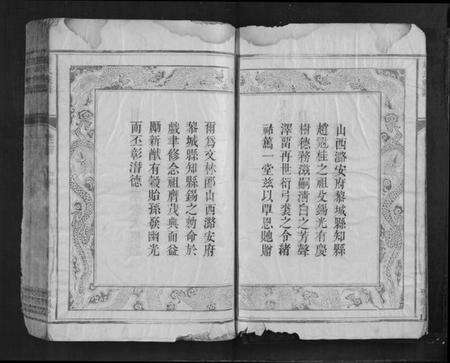 山西潞安府黎城縣知縣
趙冠桂之祖父錫光有慶
樹德務滋嗣清白之芳聲
澤留再世衍弓裘之令緒
祚萬一堂茲以覃恩貤贈
爾為文林郎山西潞安府
黎城縣知縣錫之勅命於
戲聿修念祖膺茂典而益
勵新猷有榖貽孫發幽光
而丕彰潛德